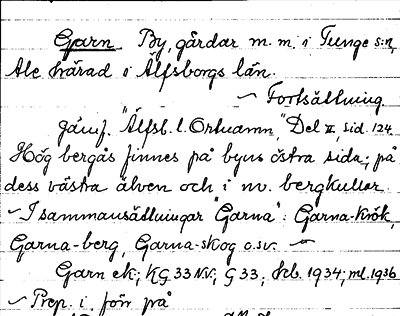 Garn. By, gårdar m.m. i Tunge s:n,
Ale härad i Älfsborgs län.
~ Fortsättning.
Jämf. "Älfsb. l. Ortnamn," Del II, sid. 124.
Hög bergås finnes på byns östra sida; på
dess västra älven och i nv. bergkullar.
~ I sammansättningar "Garna": Garna-krök,
Garna-berg, Garna-skog o.s.v. ~
Garn ek; KG 33 NV; G 33; hb. 1934; ml. 1936
~ Prep. i, förr på